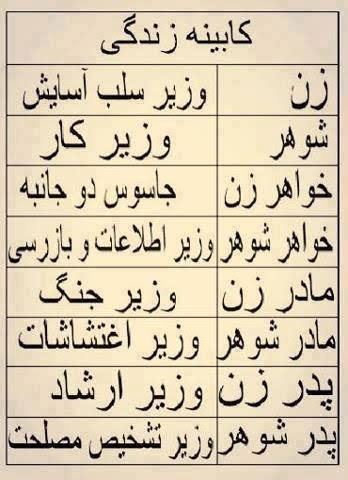 کابینه زندگی
زن وزیر سلب آسایش
شوهر وزیر کار
خواهر زن جاسوس دو جانبه
خواهر شوهر وزیر اطلاعات و بازرسی
مادر زن وزیر جنگ
مادر شوهر وزیر اغتشاشات
پدر زن وزیر ارشاد
پدر شوهر وزیر تشخیص مصلحت